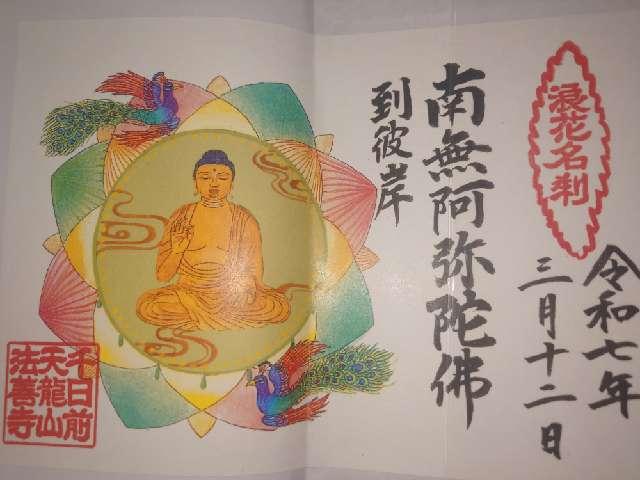 浪花名刹
令和七年
三月十二日
南無阿弥陀佛
到彼岸
千日前
天龍山
法善寺